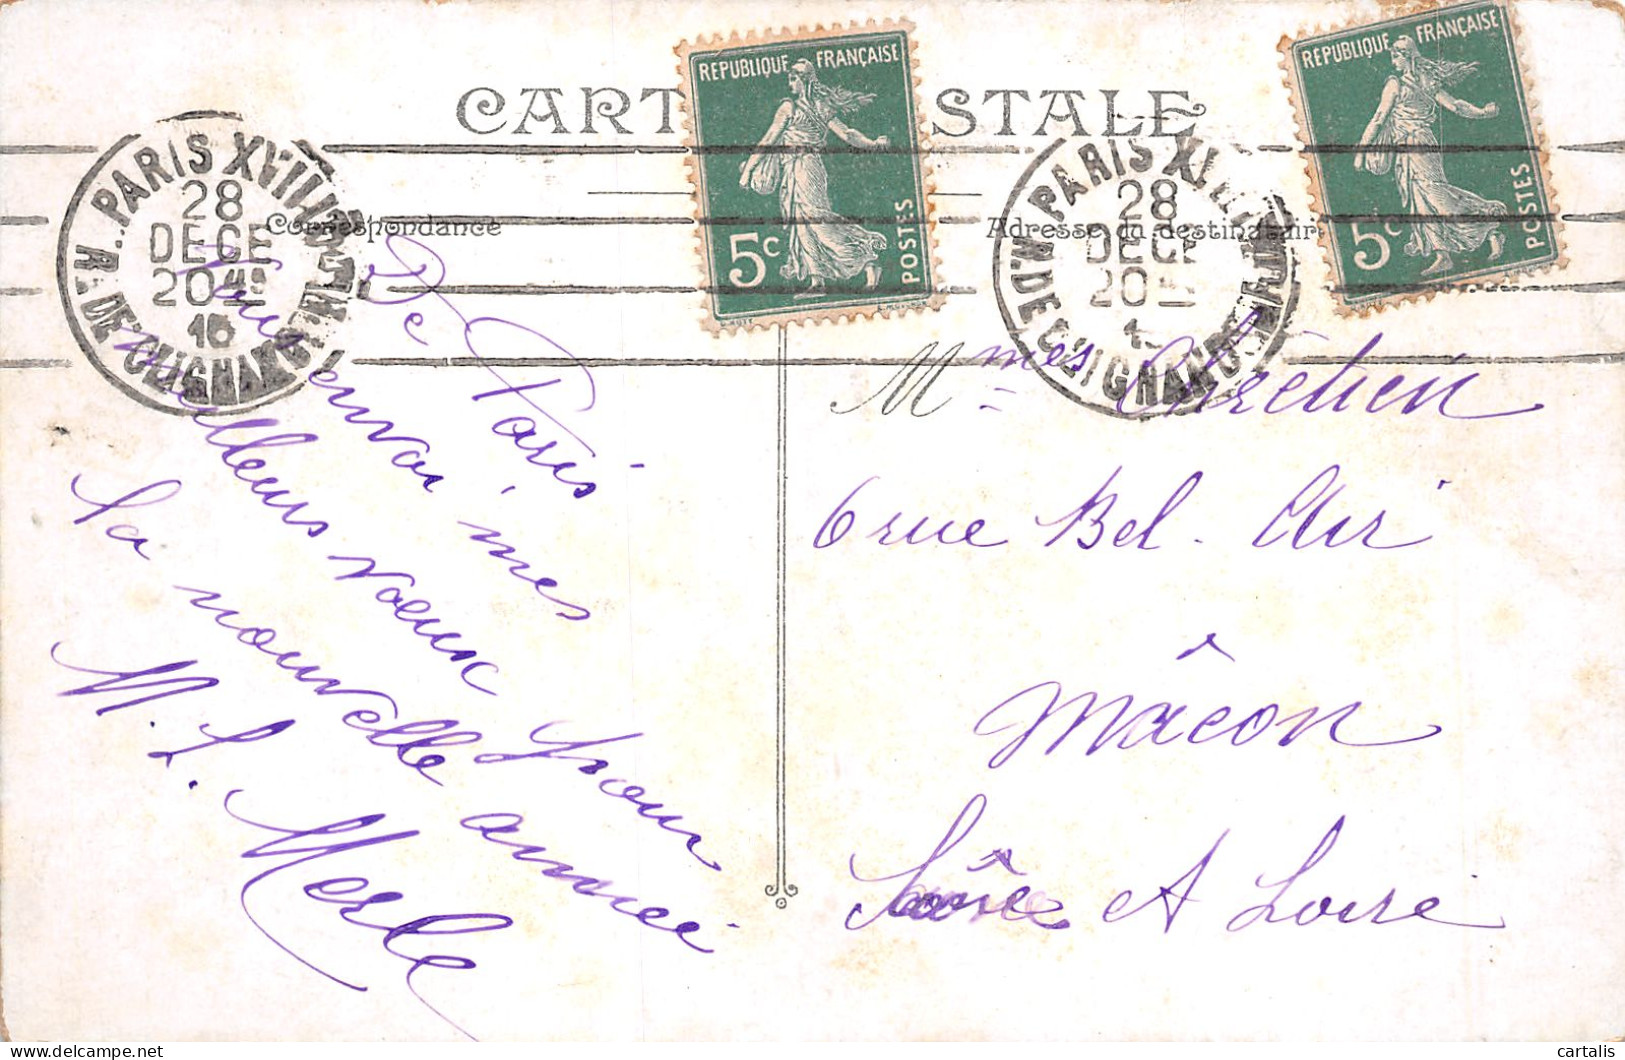 CARTE POSTALE
REPUBLIQUE FRANÇAISE
5c POSTES
REPUBLIQUE FRANÇAISE
5c POSTES
PARIS XVIII
R. DE CLIGNANCOURT
28
DECE
20
16
PARIS XVIII
R. DE CLIGNANCOURT
28
DECE
20
1
Correspondance
Adresse du destinataire
De Paris
Vous envoi mes
meilleurs voeux pour
la nouvelle année
M. L. Merle
Mmes Chrétien
6 rue Bel-Air
Mâcon
Saône et Loire
cartalis
delcampe.net